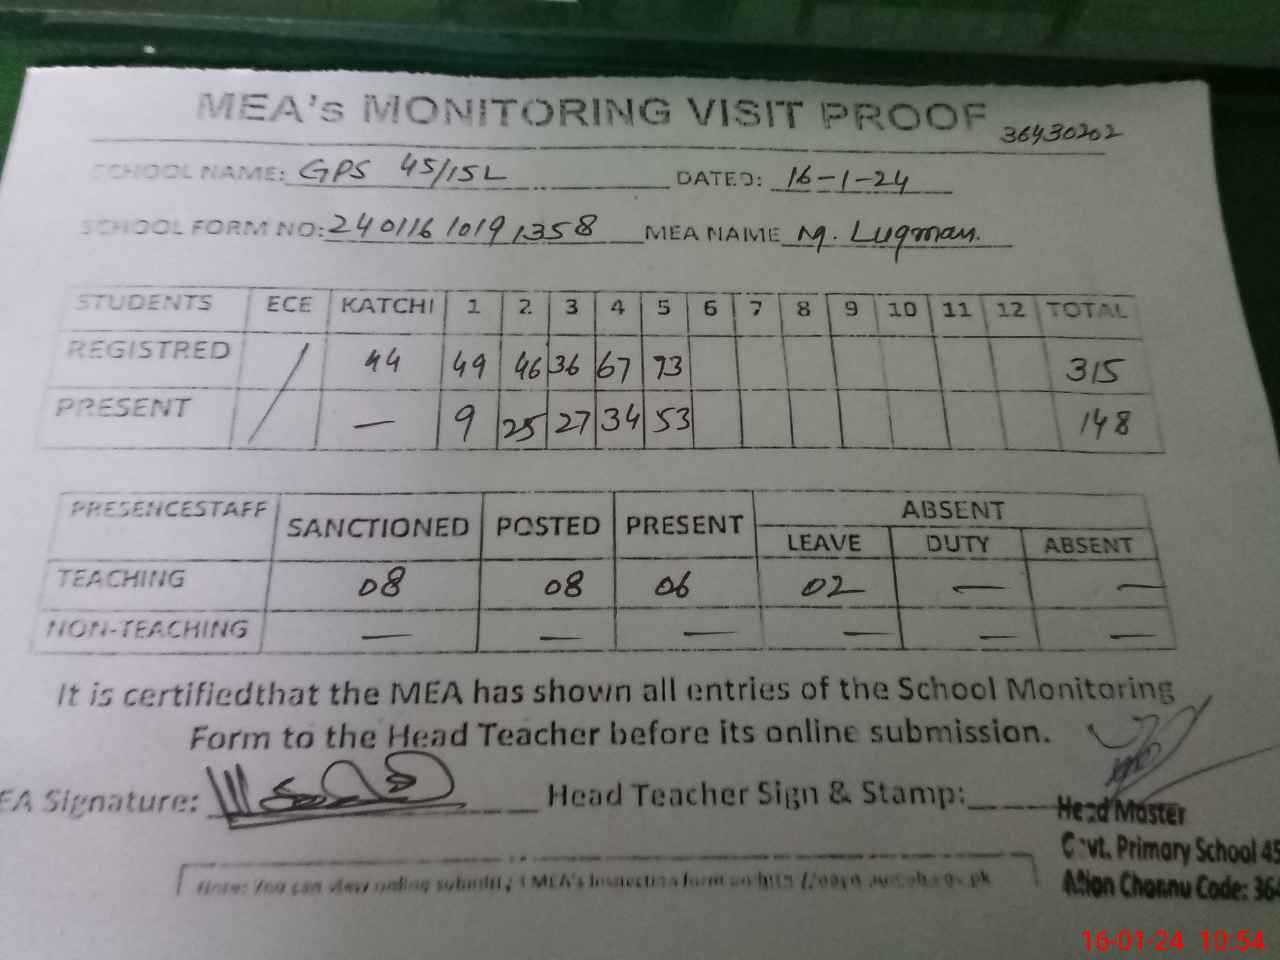 MEA's MONITORING VISIT PROOF 36430202
SCHOOL NAME: GPS 45/15L DATED: 16-1-24
SCHOOL FORM NO: 240116 1019 1358 MEA NAME M. Luqman.
STUDENTS ECE KATCHI 1 2 3 4 5 6 7 8 9 10 11 12 TOTAL
REGISTRED / 44 49 46 36 67 73 315
PRESENT — 9 25 27 34 53 148
PRESENCESTAFF SANCTIONED POSTED PRESENT ABSENT
LEAVE DUTY ABSENT
TEACHING 08 08 06 02 — —
NON-TEACHING — — — — — —
It is certifiedthat the MEA has shown all entries of the School Monitoring
Form to the Head Teacher before its online submission.
EA Signature: Head Teacher Sign & Stamp:
Head Master
Govt. Primary School 45
Mian Channu Code: 364
Note: You can view online MEA's Inspection form on
16-01-24 10:54